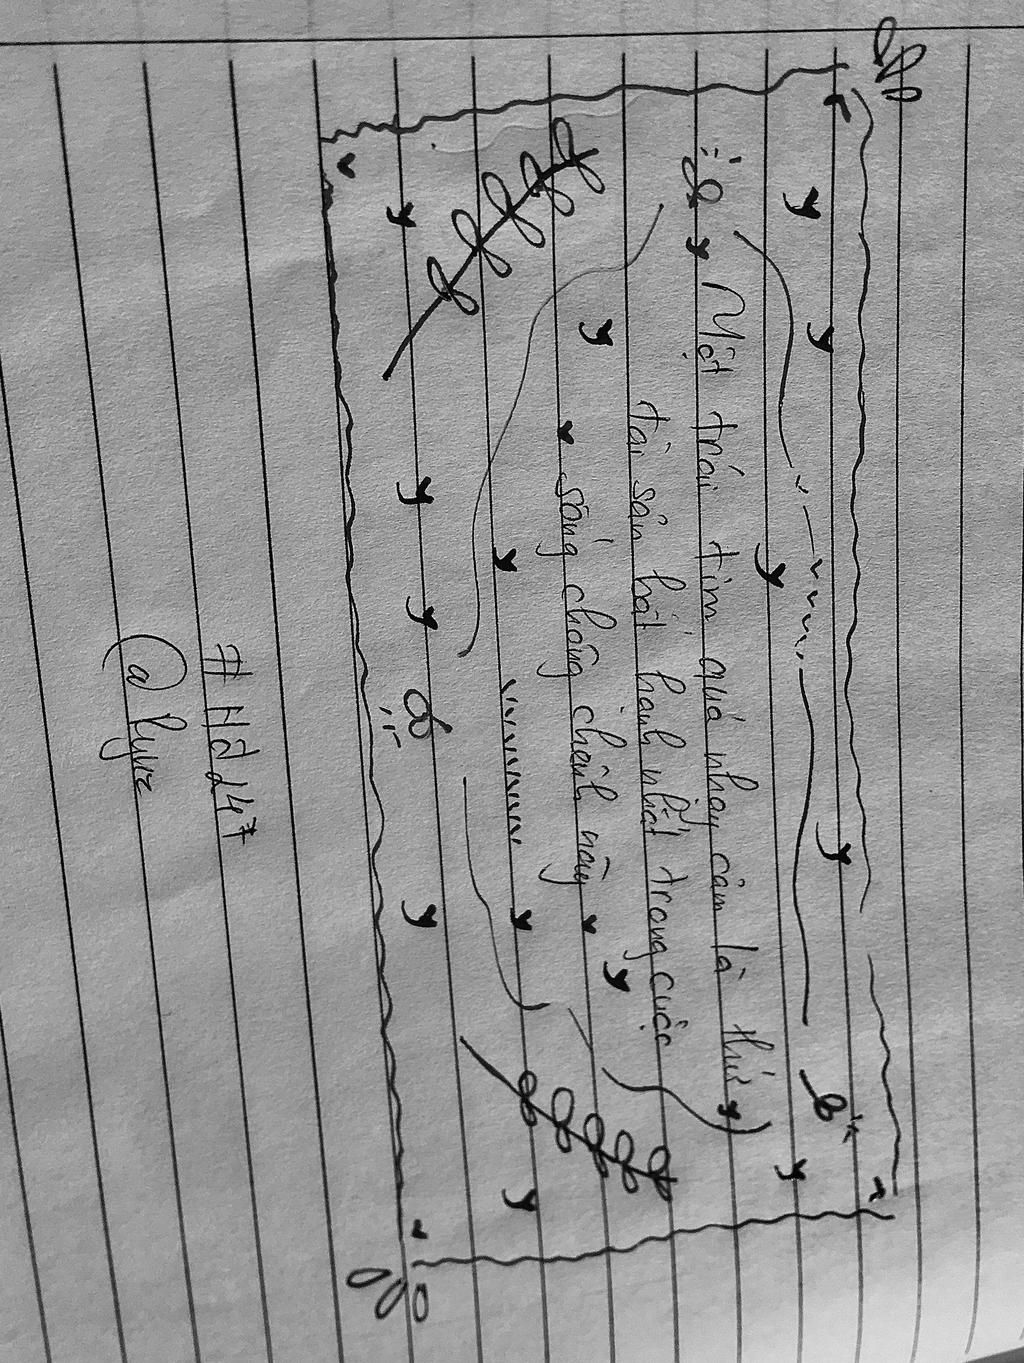 Một trái tim quá nhạy cảm là thứ
tài sản bất hạnh nhất trong cuộc
sống chông chênh này
#Hd247